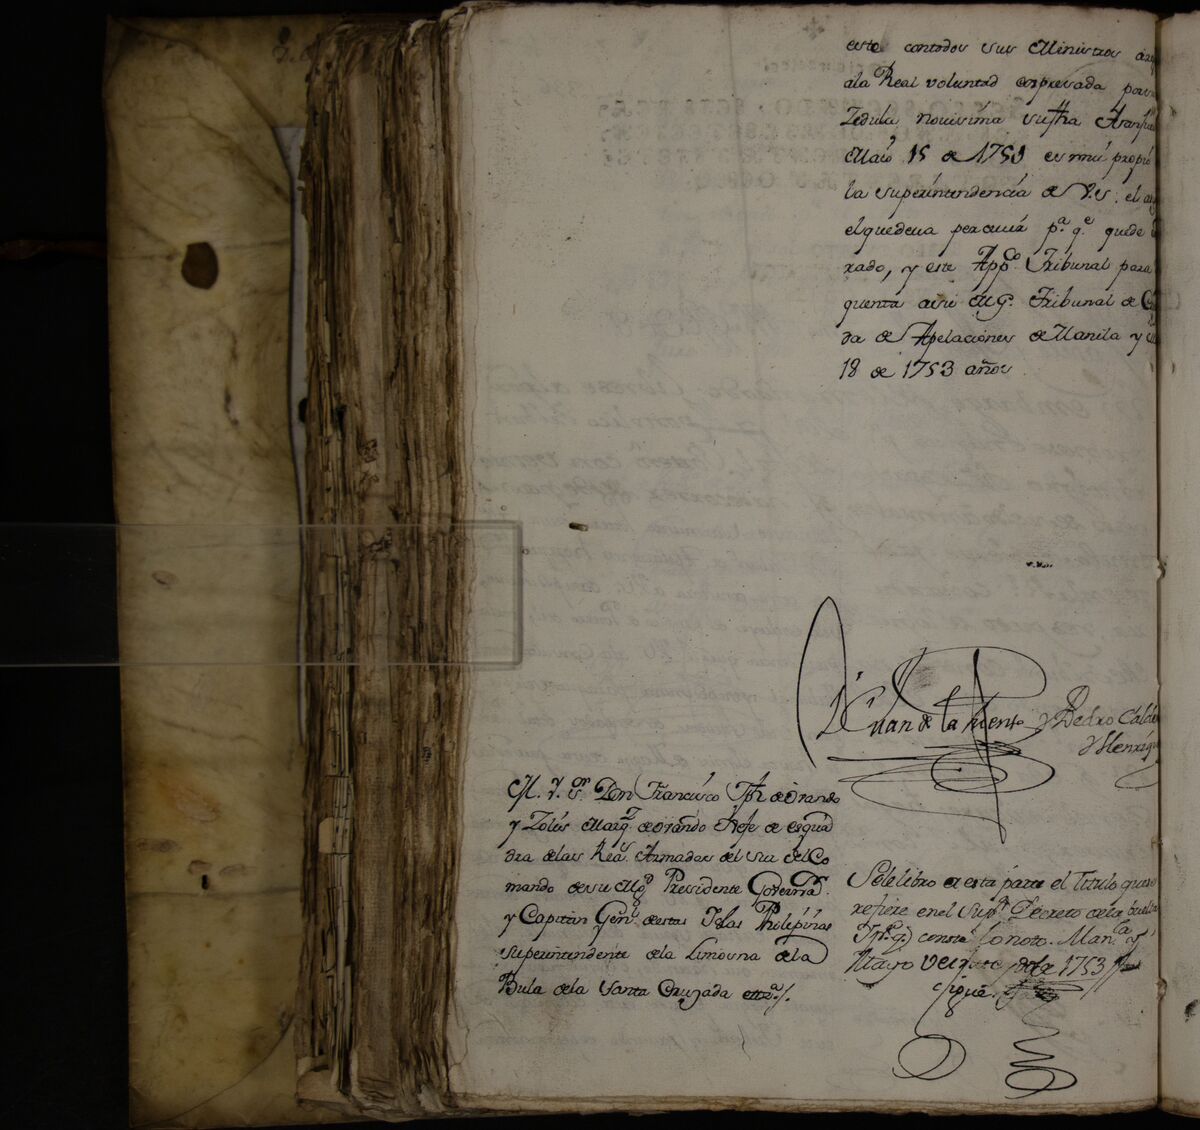 este contodos sus Ministros
ala Real voluntad expresada por
Zedula novisima sufha Aranju
Maio 15 de 1751 es mui propio
la superintendencia de V.S. el
el que deva percivir pa. qe. quede
rado, y este Appco. Tribunal para
quenta asu Mg. Tribunal de
da de Apelaciones de Manila y
18 de 1753 años
Dr. Juan de la Fuente y Pedro Calde
y Henriq
M. Y. Sor. Don Francisco Jph de Ovando
y Solis Marqz. de Ovando Xefe de esqua
dra delas Reas. Armadas del Sur del Co
mando de su Mgd. Presidente Governador.
y Capitan Genl. de estas Islas Philipinas
superintendente dela Limosna dela
Bula dela Santa Cruzada
Se le libro a esta parte el Titulo que se
refiere en el Supr. Decreto dela buelta
conste lo noto. Manla. y
Mayo de 1753